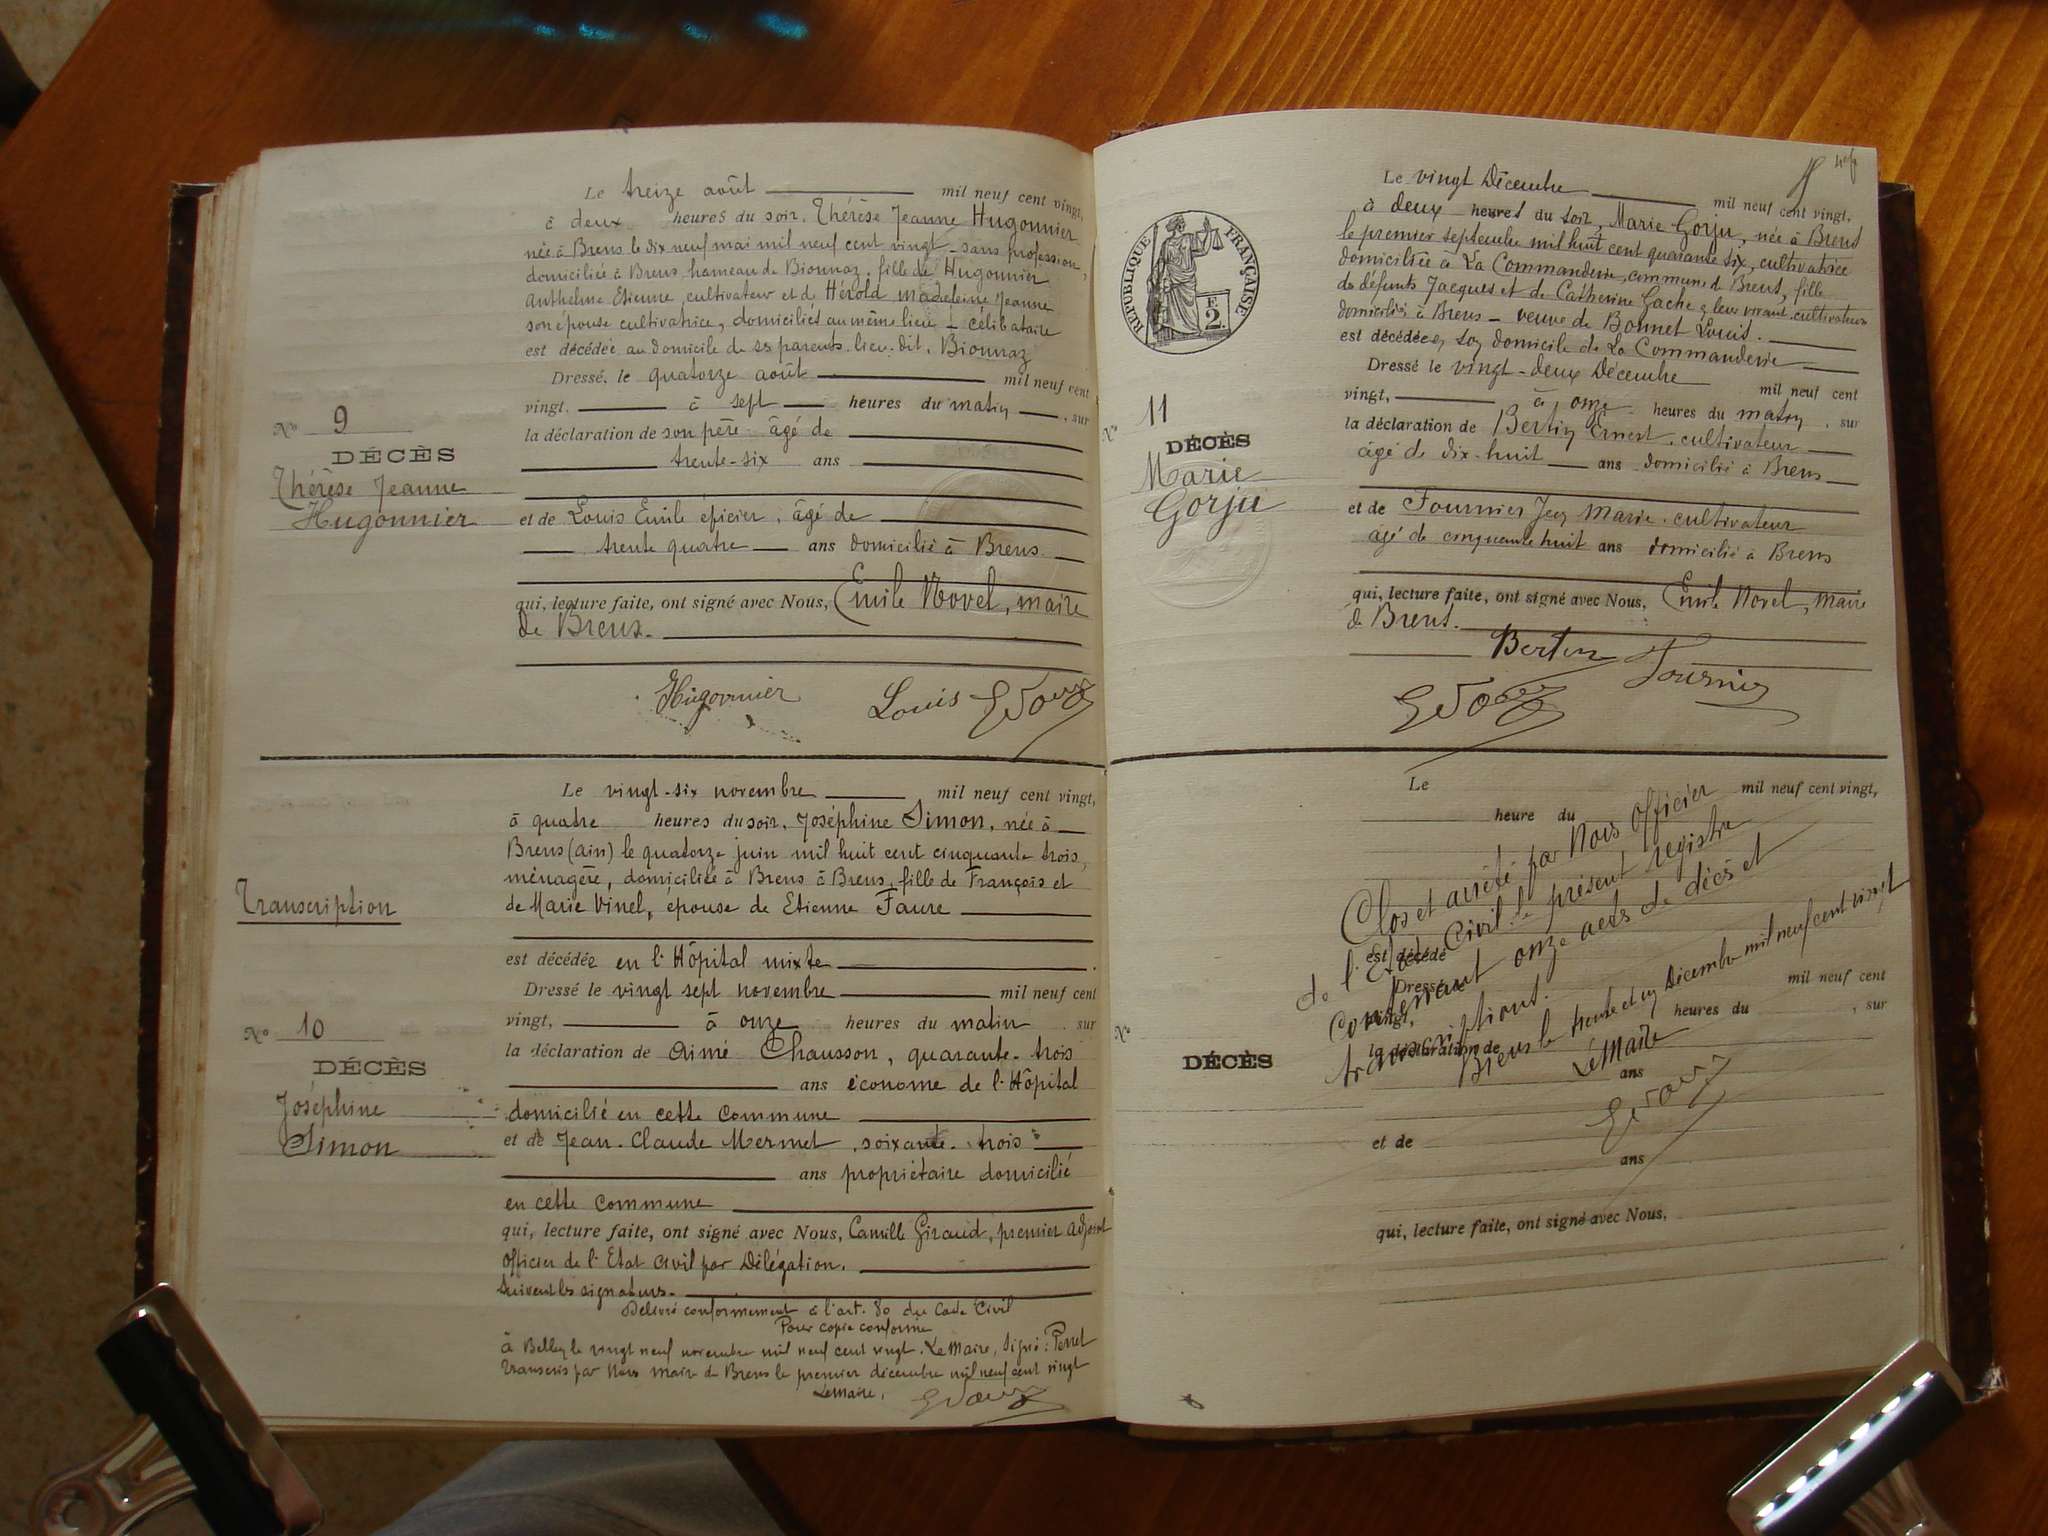 Le treize août mil neuf cent vingt,
à deux heures du soir, Thérèse Jeanne Hugonnier
née à Brens le dix neuf mai mil neuf cent vingt - sans profession,
domiciliée à Brens, hameau de Bionnaz, fille de Hugonnier
Anthelme Etienne, cultivateur et de Hérold Madeleine Jeanne
son épouse cultivatrice, domiciliés au même lieu - célibataire
est décédée au domicile de ses parents lieu dit, Bionnaz
Dressé, le quatorze août mil neuf cent
vingt, à sept heures du matin, sur
la déclaration de son père âgé de
trente-six ans
et de Louis Emile épicier, âgé de
trente quatre ans domicilié à Brens.
qui, lecture faite, ont signé avec Nous, Emile Novel, maire
de Brens.
Hugonnier Louis
No 9
DÉCÈS
Thérèse Jeanne
Hugonnier
Le vingt-six novembre mil neuf cent vingt,
à quatre heures du soir, Joséphine Simon, née à
Brens (ain) le quatorze juin mil huit cent cinquante trois,
ménagère, domiciliée à Brens à Brens, fille de François et
de Marie Vinel, épouse de Etienne Faure
est décédée en l'Hôpital mixte
Dressé le vingt sept novembre mil neuf cent
vingt, à onze heures du matin, sur
la déclaration de Aimé Chausson, quarante-trois
ans économe de l'Hôpital
domicilié en cette commune
et de Jean-Claude Mermet, soixante-trois
ans propriétaire domicilié
en cette commune
qui, lecture faite, ont signé avec Nous, Camille Giraud, premier adjoint
officier de l'Etat civil par Délégation.
Suivent les signatures.
Délivré conformément à l'art. 80 du Code Civil
Pour copie conforme
à Belley le vingt neuf novembre mil neuf cent vingt. Le Maire, Signé: Perret
Transcris par Nous maire de Brens le premier décembre mil neuf cent vingt
Le Maire,
Transcription
No 10
DÉCÈS
Joséphine
Simon
RÉPUBLIQUE FRANÇAISE
E
2.
Le vingt Décembre mil neuf cent vingt,
à deux heures du soir, Marie Gorju, née à Brens
le premier septembre mil huit cent quarante six, cultivatrice
domiciliée à La Commanderie, commune de Brens, fille
de défunts Jacques et de Catherine Gache, leur vivant cultivateurs
domiciliés à Brens - veuve de Bonnet Louis.
est décédée son domicile de La Commanderie
Dressé le vingt-deux Décembre mil neuf cent
vingt, à onze heures du matin, sur
la déclaration de Bertin Ernest, cultivateur
âgé de dix-huit ans domicilié à Brens
et de Fournier Jean Marie, cultivateur
âgé de cinquante huit ans domicilié à Brens
qui, lecture faite, ont signé avec Nous, Emile Novel, Maire
de Brens.
Bertin Fournier
No 11
DÉCÈS
Marie
Gorju
Le mil neuf cent vingt,
heure du
Clos et arrêté par Nous Officier
de l'Etat Civil le présent registre
contenant onze actes de décès et
transcriptions.
Brens le trente et un Décembre mil neuf cent vingt
Le Maire
est décédé
Dressé mil neuf cent
vingt, heures du , sur
la déclaration de
ans
et de
ans
qui, lecture faite, ont signé avec Nous,
No
DÉCÈS